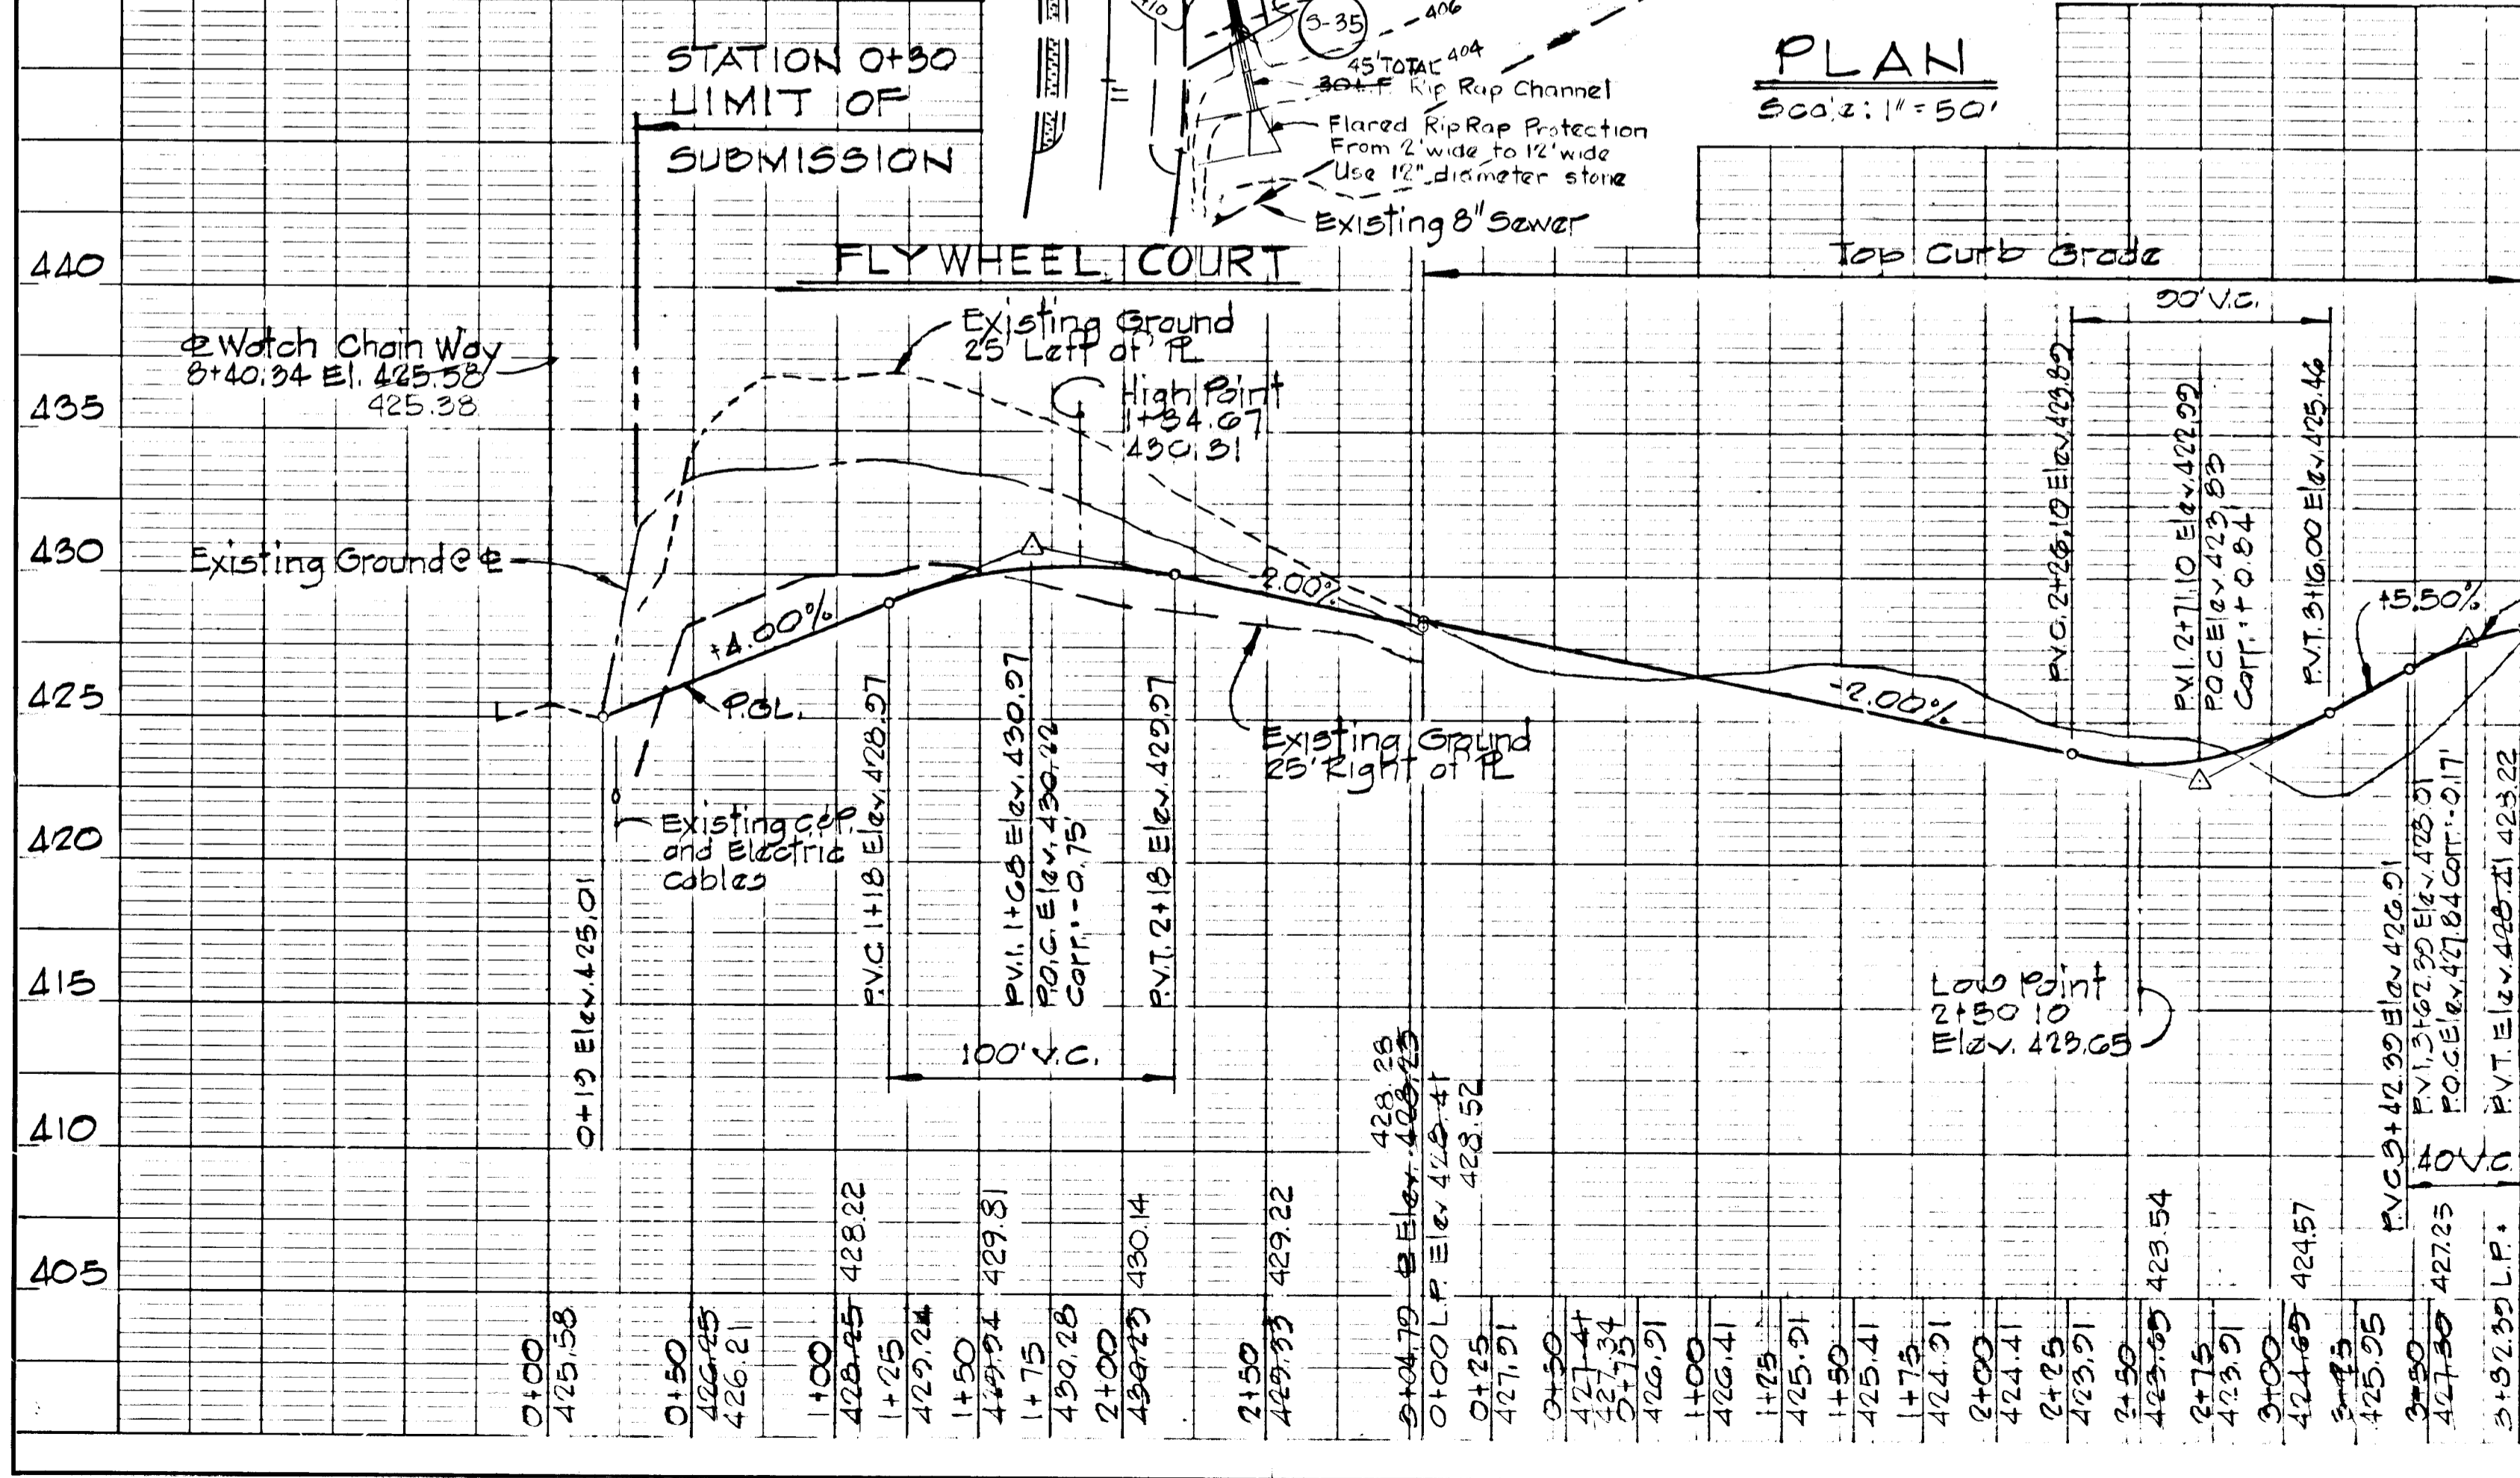 410
S-35
406
404
45' TOTAL
30 L.F. Rip Rap Channel
Flared Rip Rap Protection
From 2' wide to 12' wide
Use 12" diameter stone
Existing 8" Sewer
PLAN
Scale: 1" = 50'
STATION 0+30
LIMIT OF
SUBMISSION
FLYWHEEL COURT
Top Curb Grade
440
435
430
425
420
415
410
405
℄ Watch Chain Way
8+40.34 El. 425.58
425.38
Existing Ground
25' Left of ℄
High Point
1+84.67
430.31
90' V.C.
Existing Ground @ ℄
+4.00%
P.G.L.
-2.00%
-2.00%
+5.50%
Existing Ground
25' Right of ℄
Existing C&P.
and Electric
Cables
0+19 Elev. 425.01
P.V.C. 1+18 Elev. 428.97
P.V.I. 1+68 Elev. 430.97
P.O.C. Elev. 430.22
Corr. = -0.75'
P.V.T. 2+18 Elev. 429.97
100' V.C.
428.28
3+04.79 ℄ Elev. 428.23
0+00 L.P. Elev 428.41
428.52
P.V.C. 2+26.10 Elev. 423.89
P.V.I. 2+71.10 Elev. 422.99
P.O.C. Elev. 423.83
Corr. = +0.84'
P.V.T. 3+16.00 Elev. 425.46
Low Point
2+50 10
Elev. 423.65
P.V.C. 3+42.39 Elev 426.91
P.V.I. 3+62.39 Elev. 428.01
P.O.C. Elev. 427.84 Corr. = -0.17'
P.V.T. Elev. 428.41 428.22
40' V.C.
0+00
425.58
0+50
426.25
426.21
1+00
428.25 428.22
1+25
429.24
1+50
429.94 429.81
1+75
430.28
2+00
430.23 430.14
2+50
429.33 429.22
0+25
427.91
0+50
427.41
427.34
0+75
426.91
1+00
426.41
1+25
425.91
1+50
425.41
1+75
424.91
2+00
424.41
2+25
423.91
2+50
423.65 423.54
2+75
423.91
3+00
424.65 424.57
3+25
425.95
3+50
427.30 427.23
3+82.39 L.P.